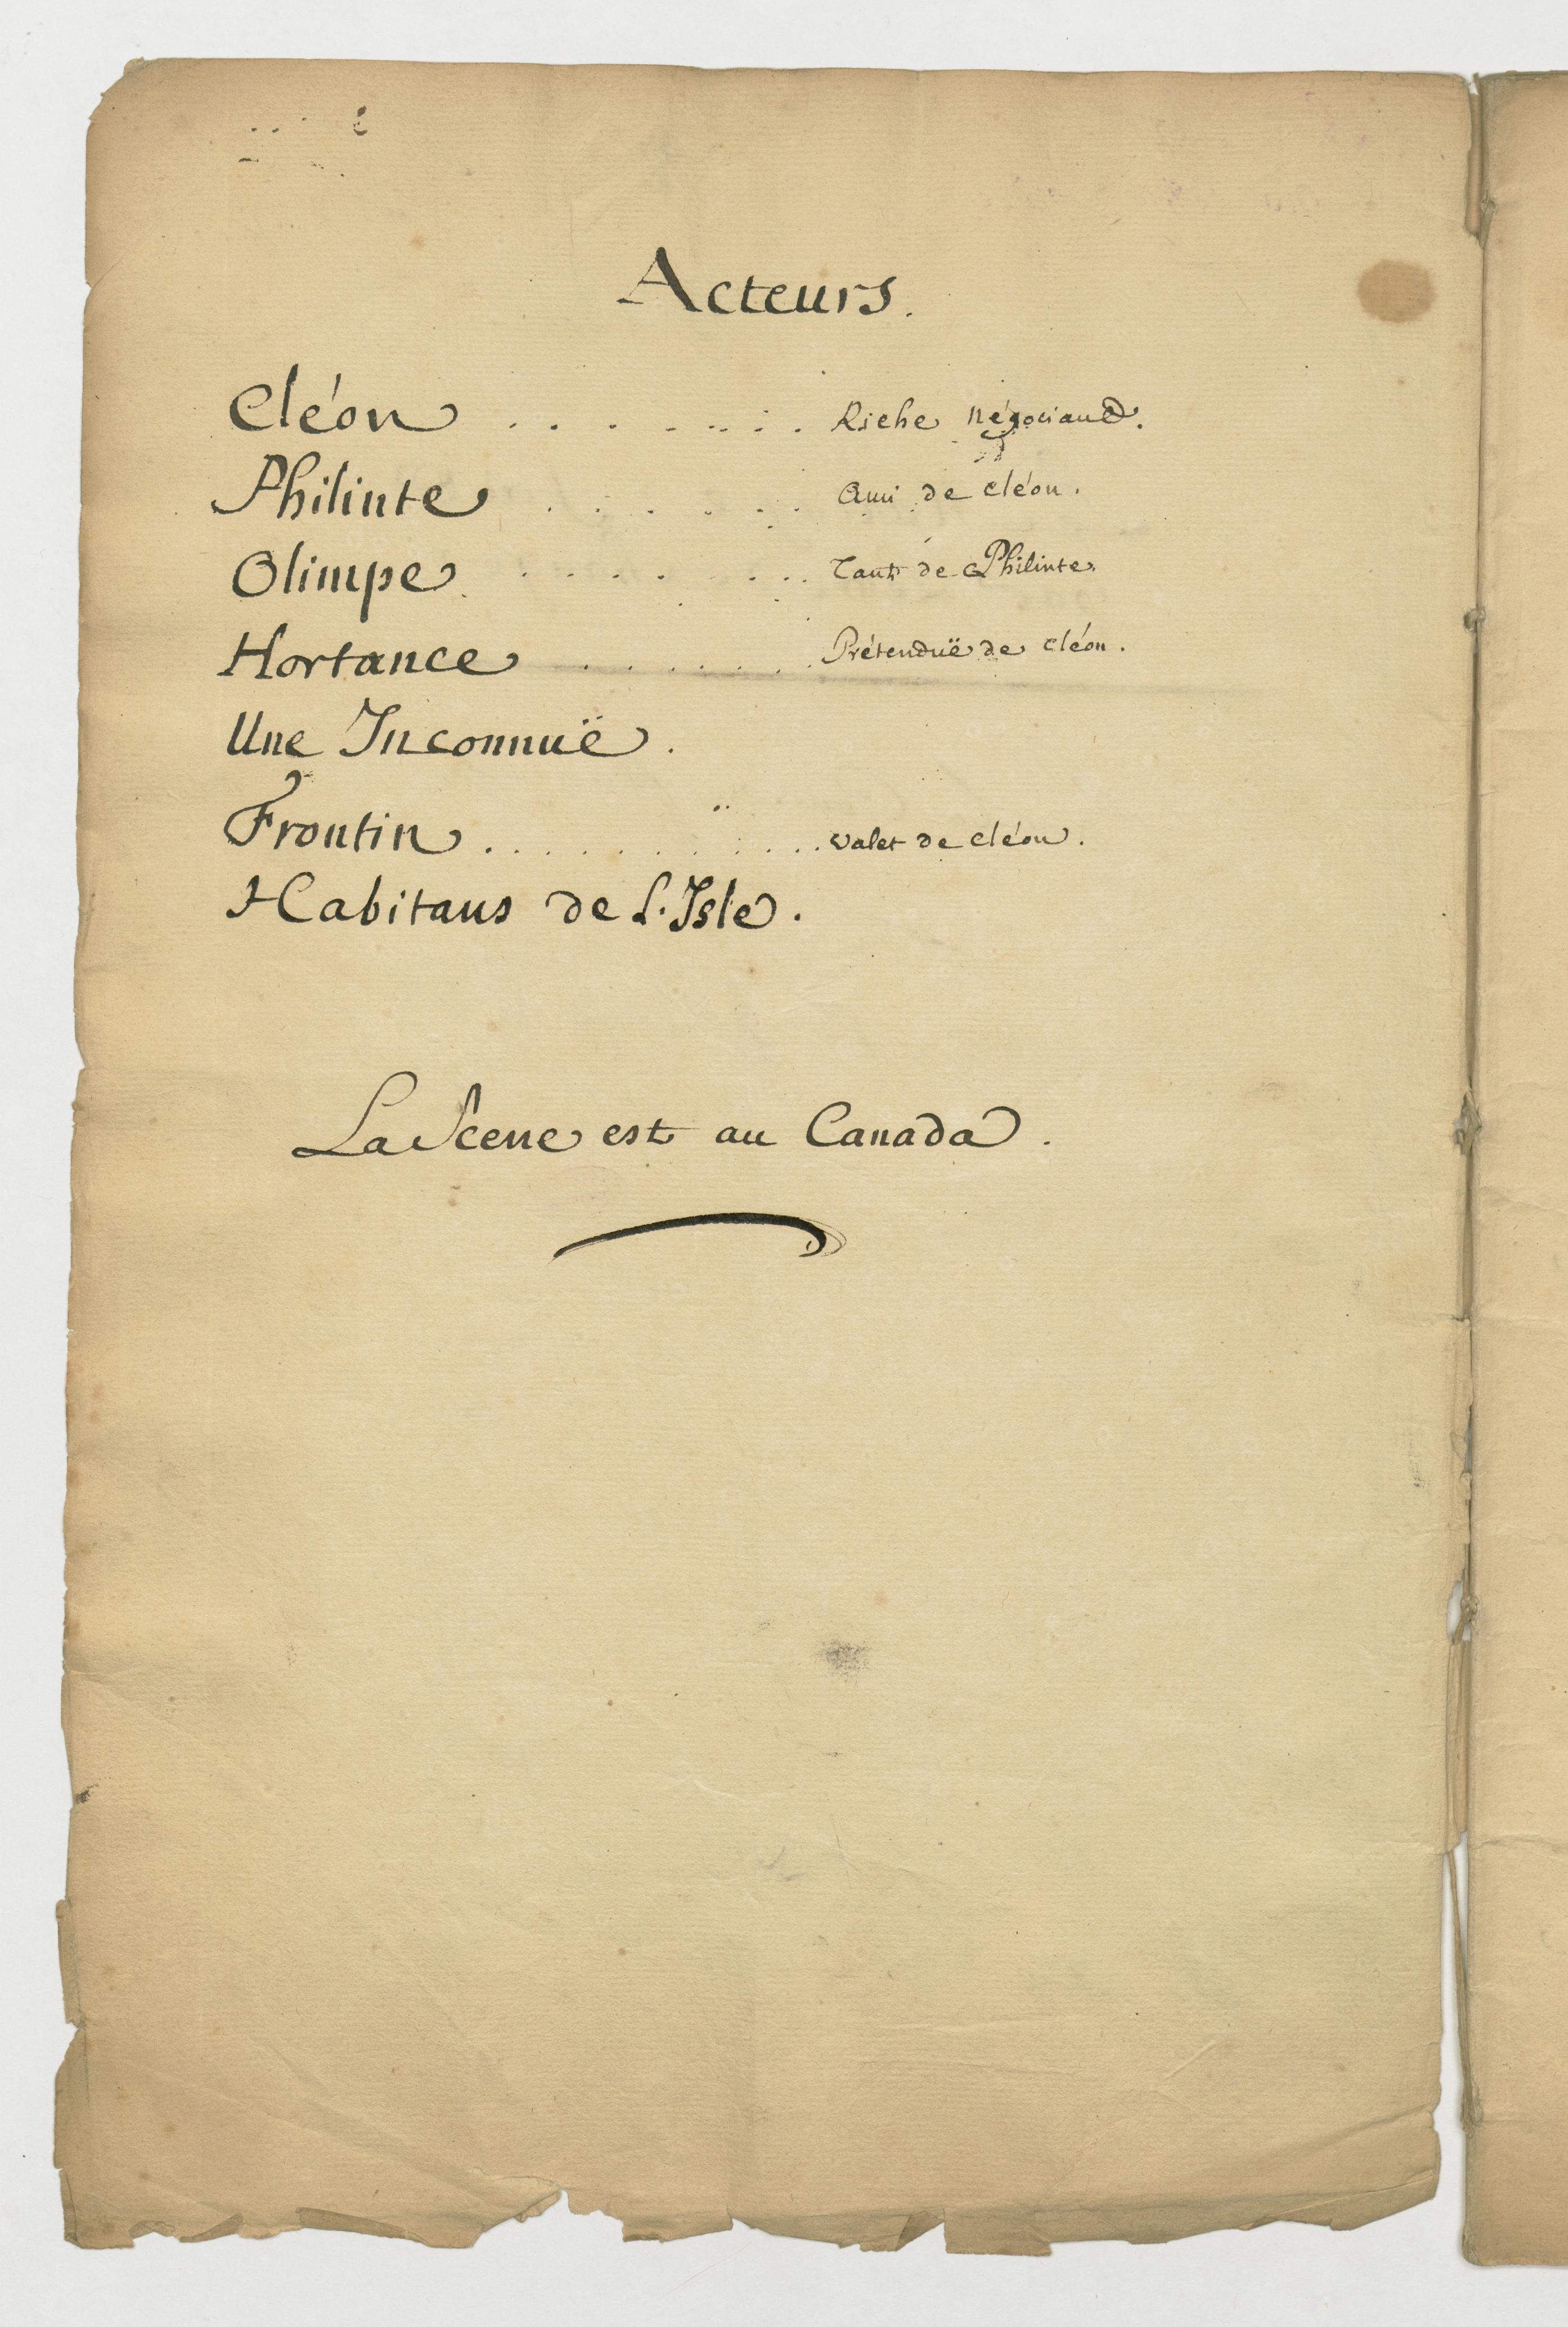 Acteurs.
Cléon . . . . . . . . . Riche négociand.
Philinte . . . . . . Ami de cléon.
Olimpe . . . . . . . . Tante de Philinte.
Hortance . . . . . . . . Prétenduë de cléon.
Une Inconnuë.
Frontin . . . . . . . . . . . . valet de cléon.
Habitans de L'Isle.
La Scene est au Canada.